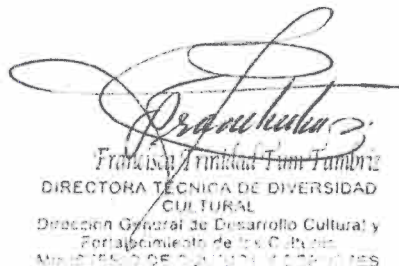 Francisca Trinidad Tum Tambriz
DIRECTORA TÉCNICA DE DIVERSIDAD
CULTURAL
Dirección General de Desarrollo Cultural y
Fortalecimiento de las Culturas
MINISTERIO DE CULTURA Y DEPORTES